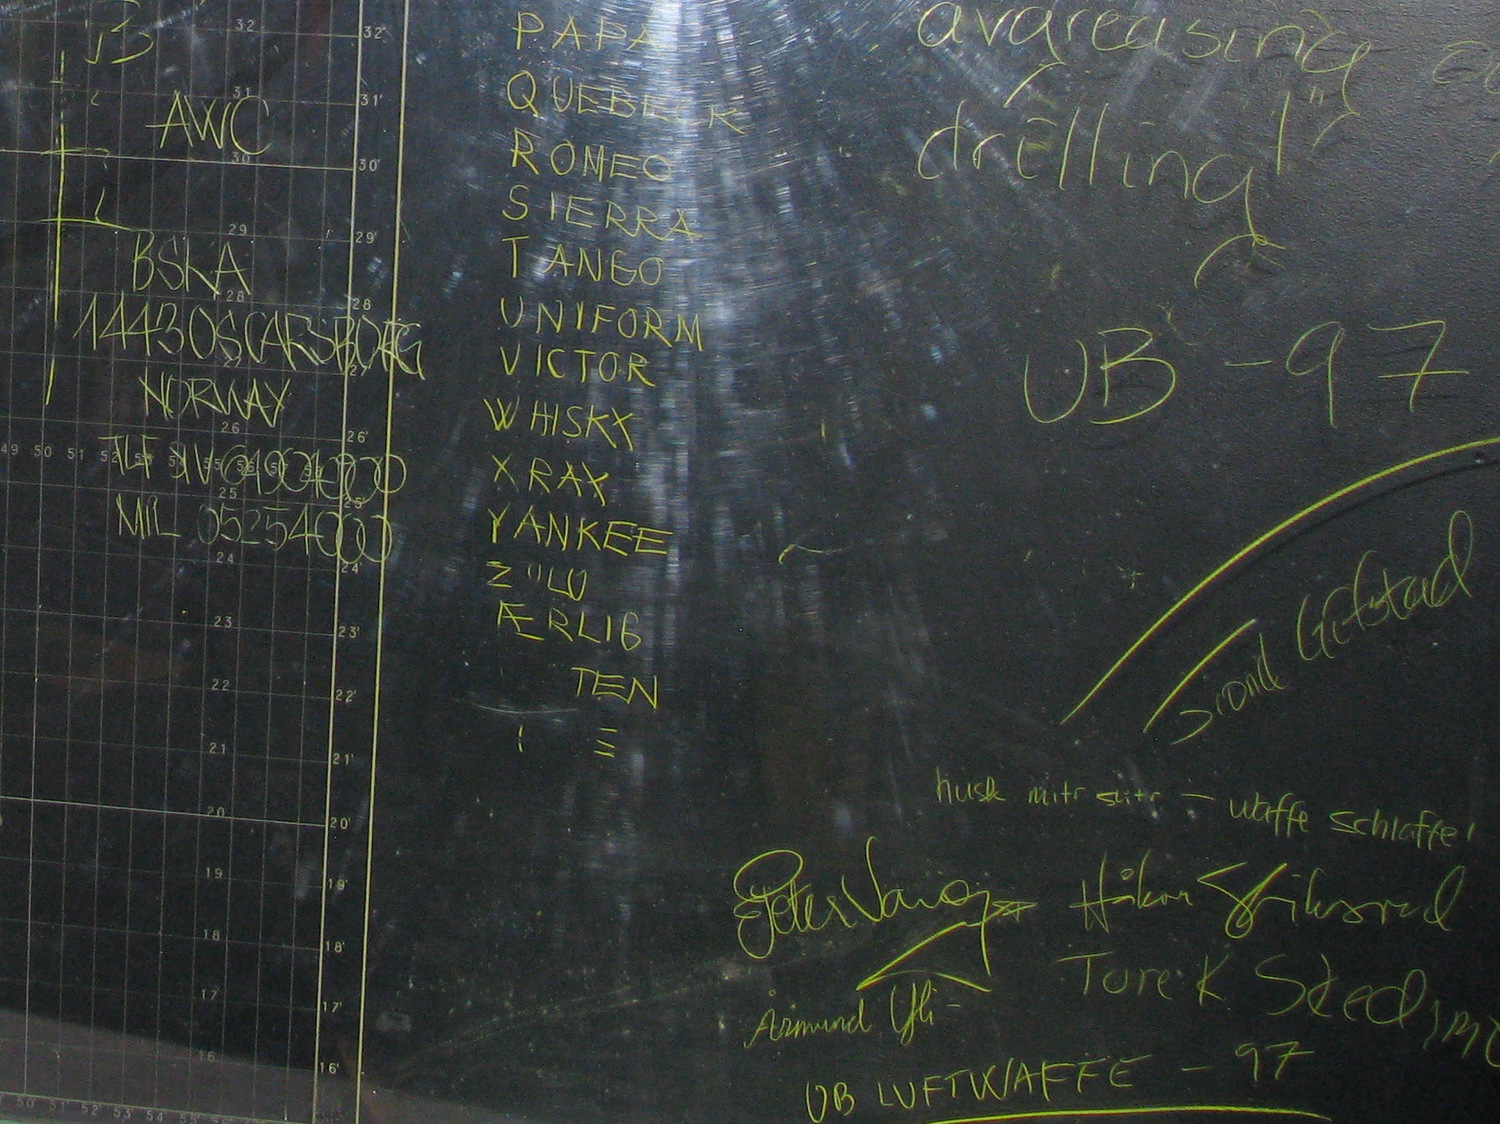 AWC
BSKA
1443 OSCARSBORG
NORWAY
TLF SIV 64904000
MIL 05254000
PAPA
QUEBECK
ROMEO
SIERRA
TANGO
UNIFORM
VICTOR
WHISKY
XRAY
YANKEE
ZULU
ÆRLIG
TEN
avgreasing
drilling"
UB -97
husk mitr slitr - waffe schlaffe!
Peter
Håkon
Tore K
Åsmund
UB LUFTWAFFE - 97
32 32'
31 31'
30 30'
29 29'
28 28
27
26 26'
49 50 51 52 53 54 55 56
25 25'
24 24'
23 23'
22 22'
21 21'
20 20'
19 19'
18 18'
17 17'
16 16'
50 51' 52' 53' 54 55 56